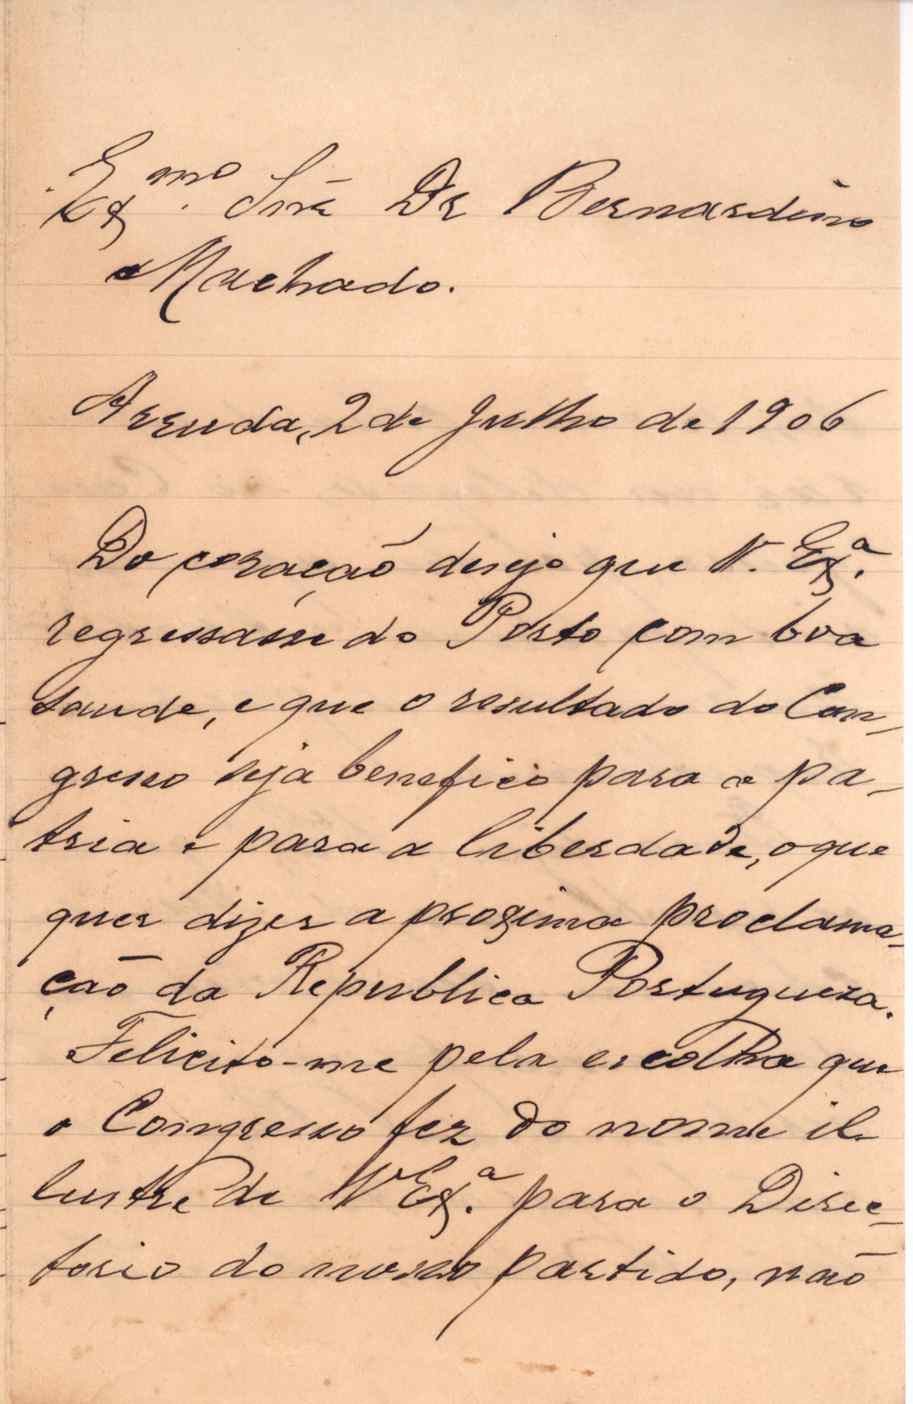 Ex.mo Snr Dr Bernardino
Machado.
Arruda, 2 de Julho de 1906
Do coração desejo que V. Ex.a
regressasse do Porto com boa
saude, e que o resultado do Con-
gresso seja benefico para a pa-
tria e para a liberdade, o que
quer dizer a proxima proclama-
ção da Republica Portugueza.
Felicito-me pela escolha que
o Congresso fez do nome il-
lustre de V Ex.a para o Direc-
torio do nosso partido, não